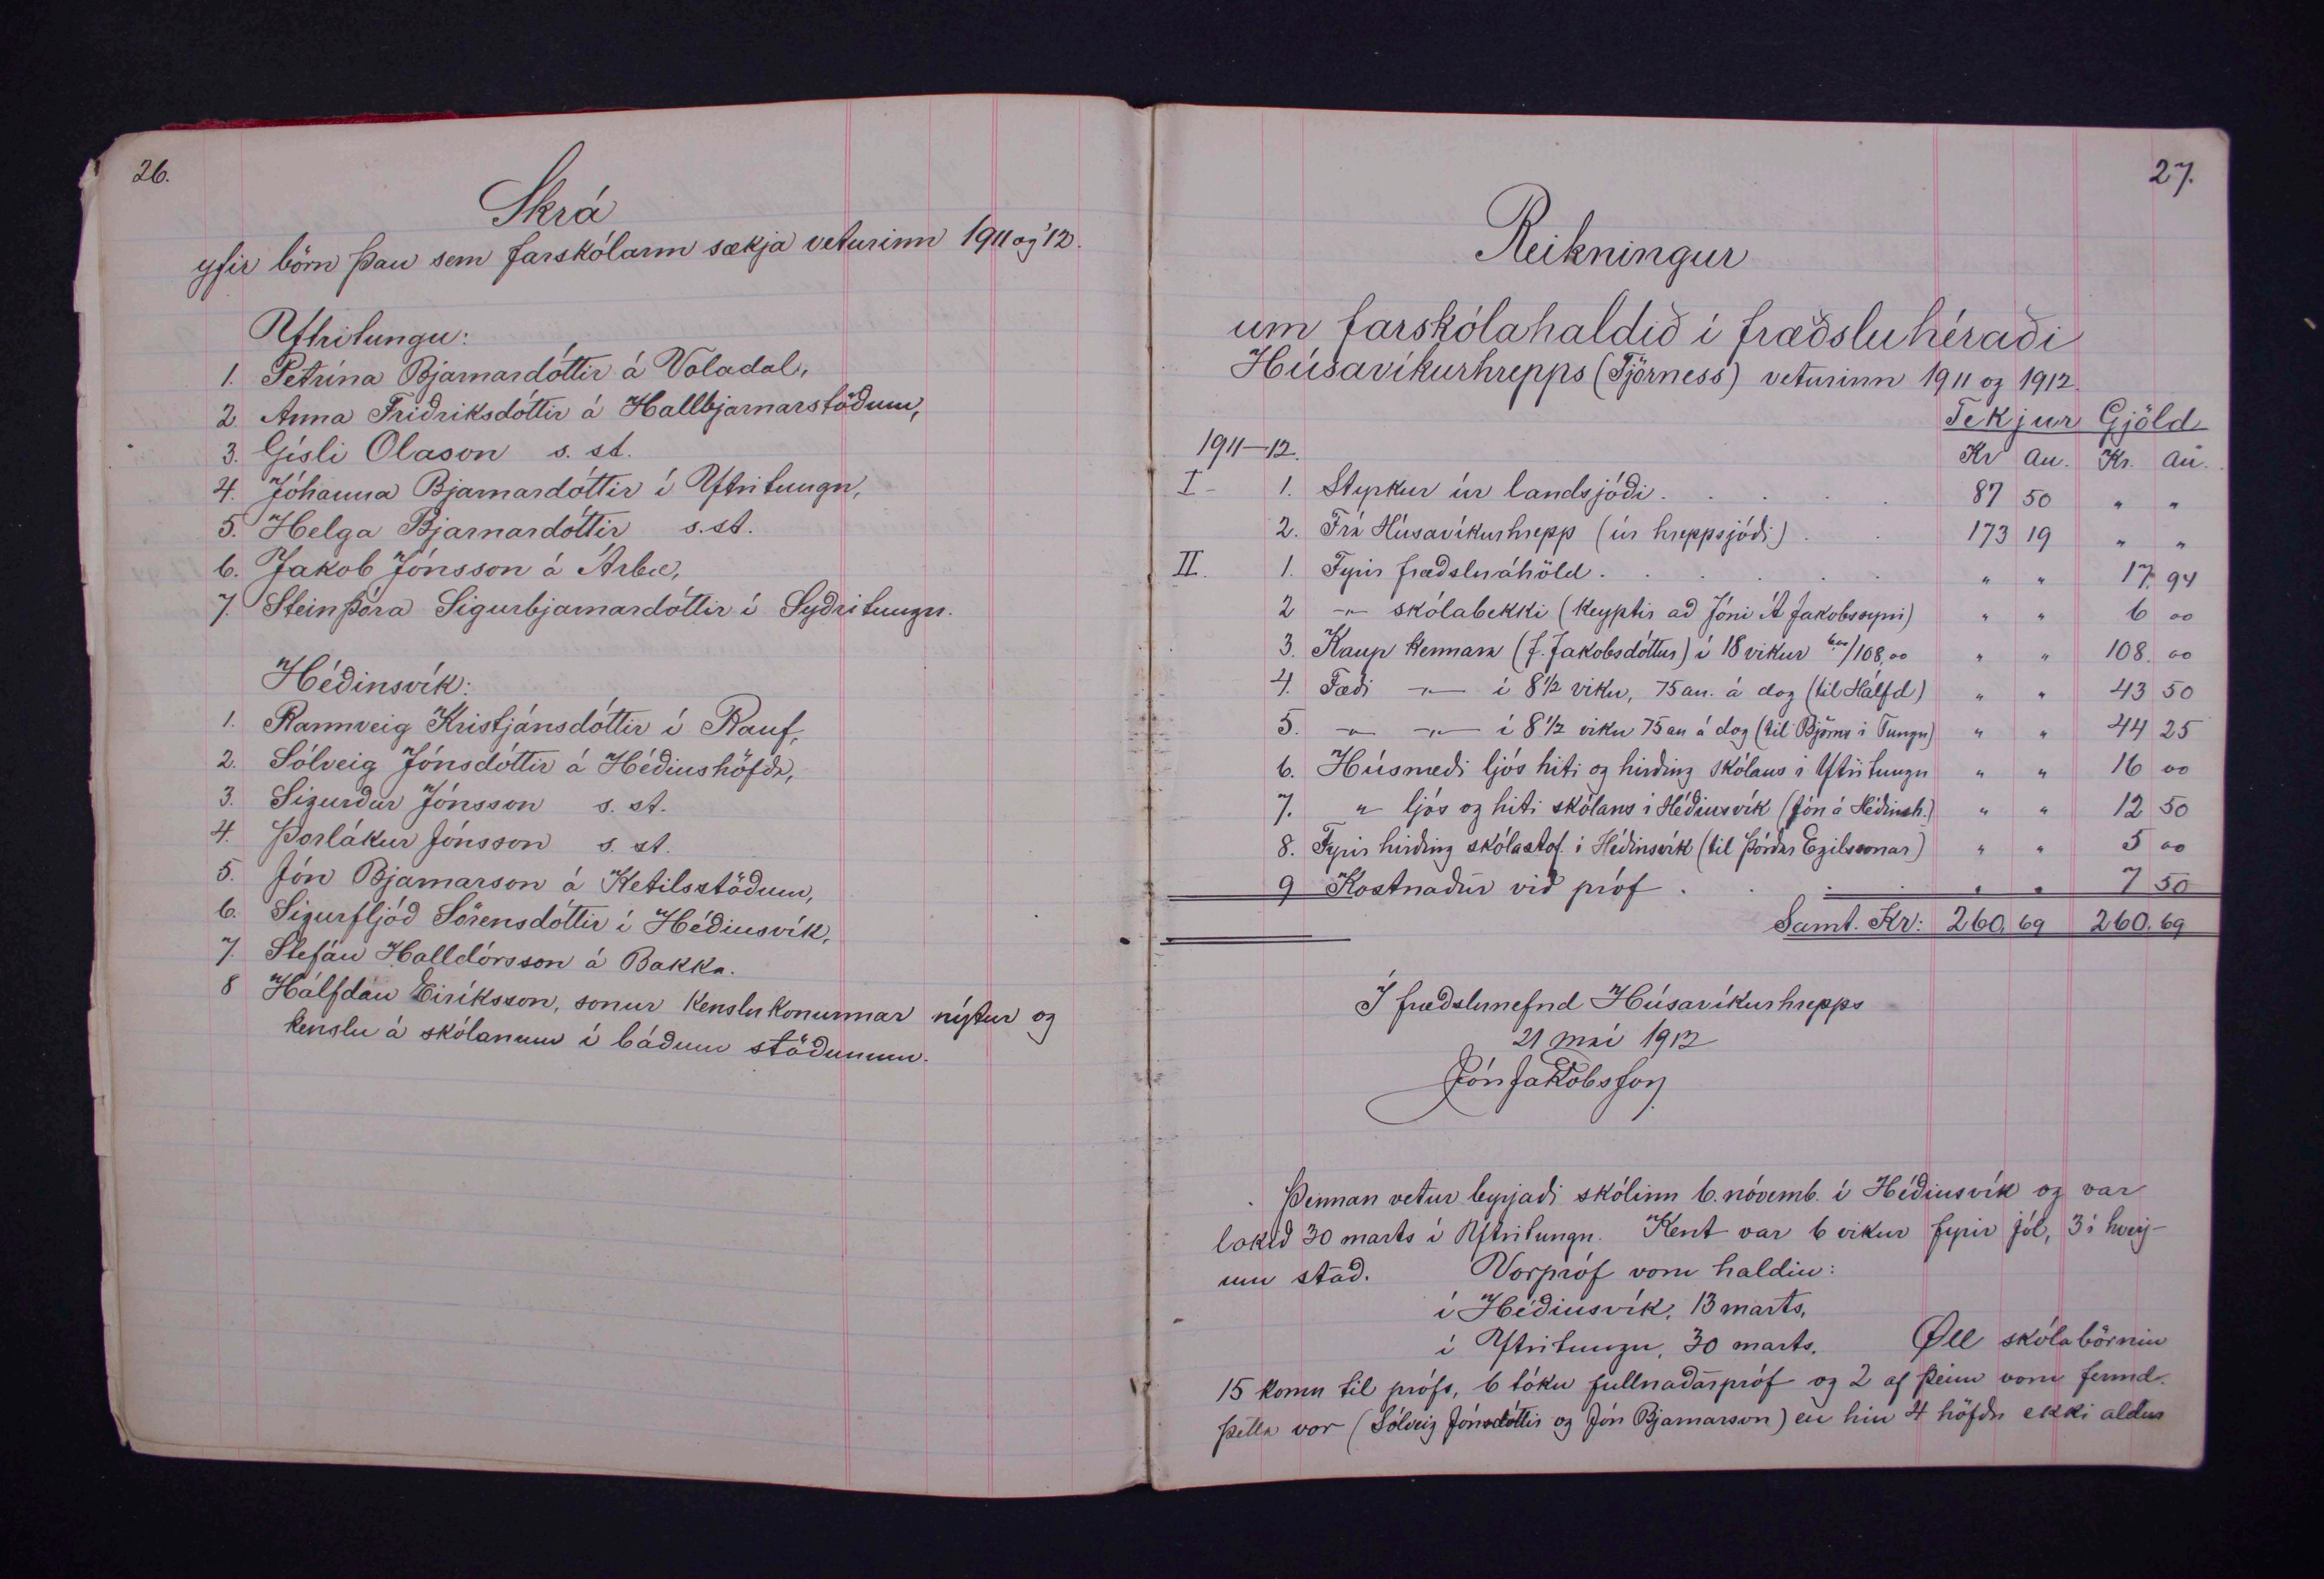 26.
Skrá
yfir börn þau sem farskólann sækja veturinn 1911 og '12.
Ytritungu:
1. Petrína Bjarnardóttir á Voladal,
2. Anna Friðriksdóttir á Hallbjarnarstöðum,
3. Gísli Olason s. st.
4. Jóhanna Bjarnardóttir í Ytritungu,
5. Helga Bjarnardóttir s. st.
6. Jakob Jónsson á Árbæ,
7. Steinþóra Sigurbjarnardóttir í Syðritungu.
Héðinsvík:
1. Rannveig Kristjánsdóttir í Rauf,
2. Sólveig Jónsdóttir á Héðinshöfða,
3. Sigurður Jónsson s. st.
4. Þorlákur Jónsson s. st.
5. Jón Bjarnarson á Ketilsstöðum,
6. Sigurfljóð Sörensdóttir í Héðinsvík,
7. Stefán Halldórsson á Bakka.
8 Hálfdán Eiríksson, sonur kenslukonunnar nýtur og
kenslu á skólanum í báðum stöðunum.
27.
Reikningur
um farskólahaldið í fræðsluhéraði
Húsavíkurhrepps (Tjörness) veturinn 1911 og 1912.
Tekjur Gjöld
1911–12. Kr au. Kr. au.
I - 1. Styrkur úr landsjóði . . . . . 87 50 " "
2. Frá Húsavíkurhrepp (úr hreppsjóði) . . 173 19 " "
II. 1. Fyrir fræðsluáhöld . . . . . . " " 17. 94
2 -"- skólabekki (keyptir að Jóni Á Jakobssyni) " " 6 00
3. Kaup kennara (J. Jakobsdóttur) í 18 vikur 6,00/108,00 " " 108. 00
4. Fæði -"- í 8 1/2 viku, 75 au. á dag (til Hálfd) " " 43 50
5. -"- -"- í 8 1/2 viku 75 au á dag (til Björns í Tungu) " " 44 25
6. Húsnæði ljós hiti og hirðing skólans í Ytritungu " " 16 00
7. " ljós og hiti skólans í Héðinsvík (Jón á Héðinsh.) " " 12 50
8. Fyrir hirðing skólastof. í Héðinsvík (til Þórðar Egilssonar) " " 5 00
9 Kostnaður við próf . . . . " " 7 50
Samt. Kr: 260. 69 260. 69
Í fræðslunefnd Húsavíkurhrepps
21 maí 1912
Jón Jakobsson
Þennan vetur byrjaði skólinn 6. nóvemb. í Héðinsvík og var
lokið 30 marts í Ytritungu. Kent var 6 vikur fyrir jól, 3 í hverj-
um stað. Vorpróf voru haldin:
í Héðinsvík, 13 marts,
í Ytritungu, 30 marts. Øll skólabörnin
15 komu til prófs, 6 tóku fullnaðarpróf og 2 af þeim voru fermd
þetta vor (Sólveig Jónsdóttir og Jón Bjarnarson) en hin 4 höfðu ekki aldur